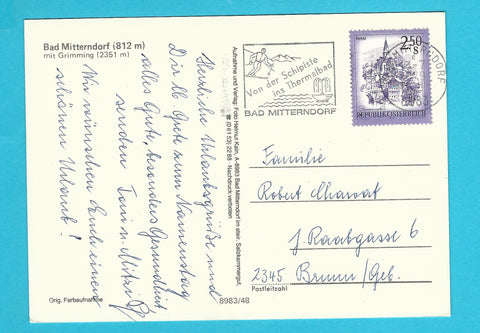 Bad Mitterndorf (812 m)
mit Grimming (2351 m)
Herzliche Urlaubsgrüße und
Dir lb. Grete zum Namenstag
alles Gute, besonders Gesundheit
senden Toni u. Mitzi
Wir wünschen Euch einen
schönen Urlaub!
Orig. Farbaufnahme
8983/48
Aufnahme und Verlag: Foto Helmut Kain, A-8983 Bad Mitterndorf im steir. Salzkammergut,
☎ (0 61 53) 22 89 - Nachdruck verboten
Von der Schipiste
ins Thermalbad
BAD MITTERNDORF
2.50
S
REPUBLIK ÖSTERREICH
Familie
Robert
J. Raabgasse 6
2345 Brunn/Geb.
Postleitzahl